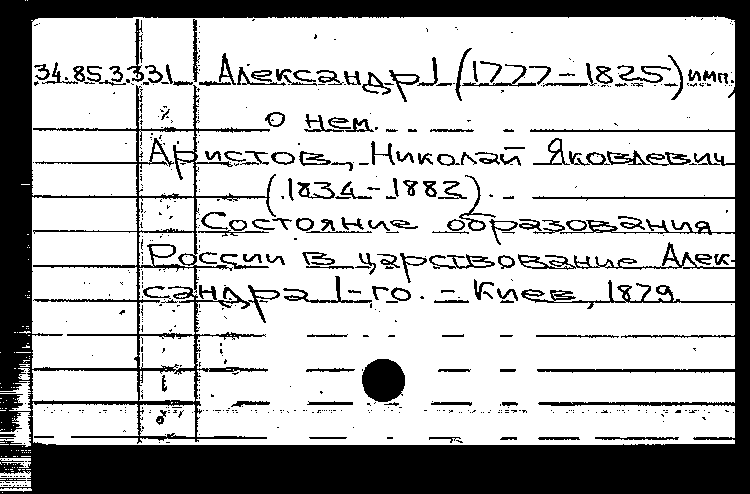 34.85.3.331 Александр I (1777-1825) имп.
о нем.
Аристов, Николай Яковлевич
(1834-1882).
Состояние образования
России в царствование Алек-
сандра I-го. - Киев, 1879.